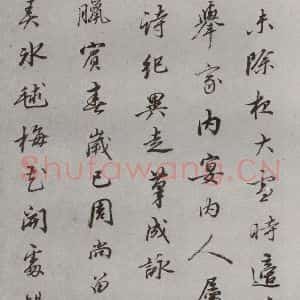 未除夜大雪時適
舉家內宴內人屬
詩紀異走筆成詠
臘賓春歲已周尚留
冰毬梅開處
Shufawang.CN